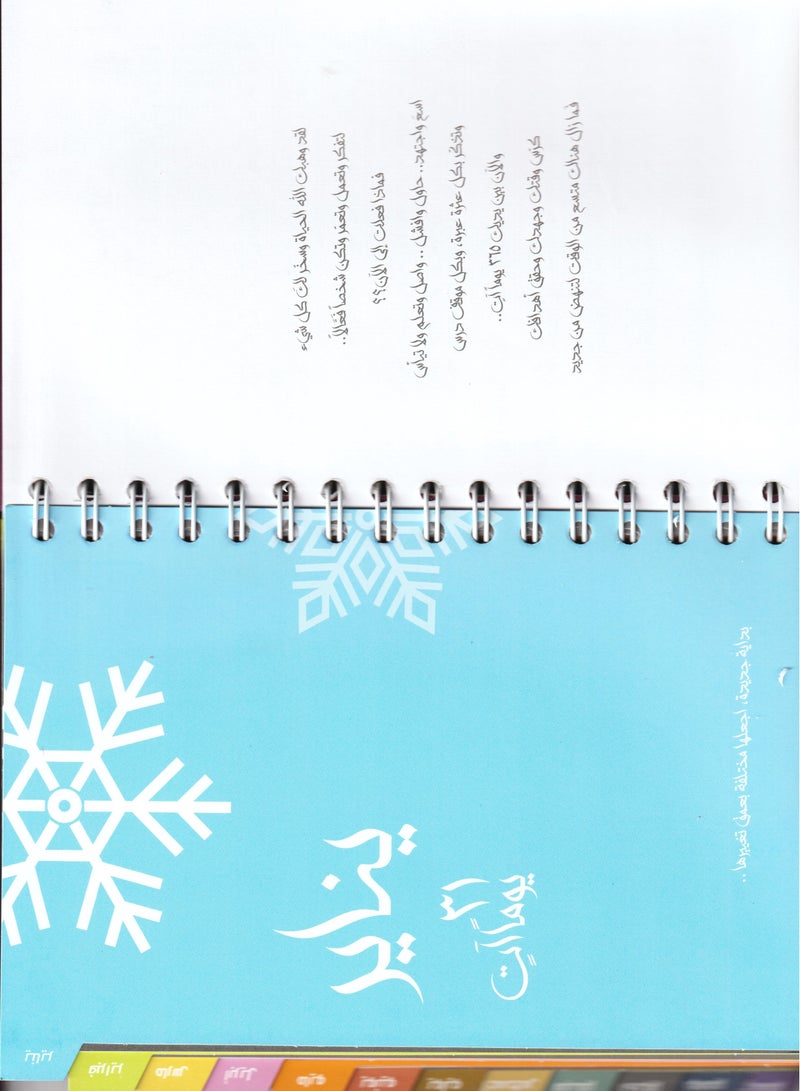 لقد وهبك الله الحياة وسخر لك كل شيء
لتفكر وتعمل وتعمر وتكن شخصاً فعّالاً..
فماذا فعلت إلى الآن؟؟
اسعَ واجتهد.. حاول وافشل .. واصل وتعلم ولا تيأس
وتذكّر بكل عثرة عبرة، وبكل موقف درس
والآن بين يديك ٣٦٥ يوماً آتٍ..
كرّس وقتك وجهدك وحقق أهدافك
فما زال هناك متسع من الوقت لتنهض من جديد
يناير
٣١
يوماً آتٍ
بداية جديدة، اجعلها مختلفة بعمق تغييرها..